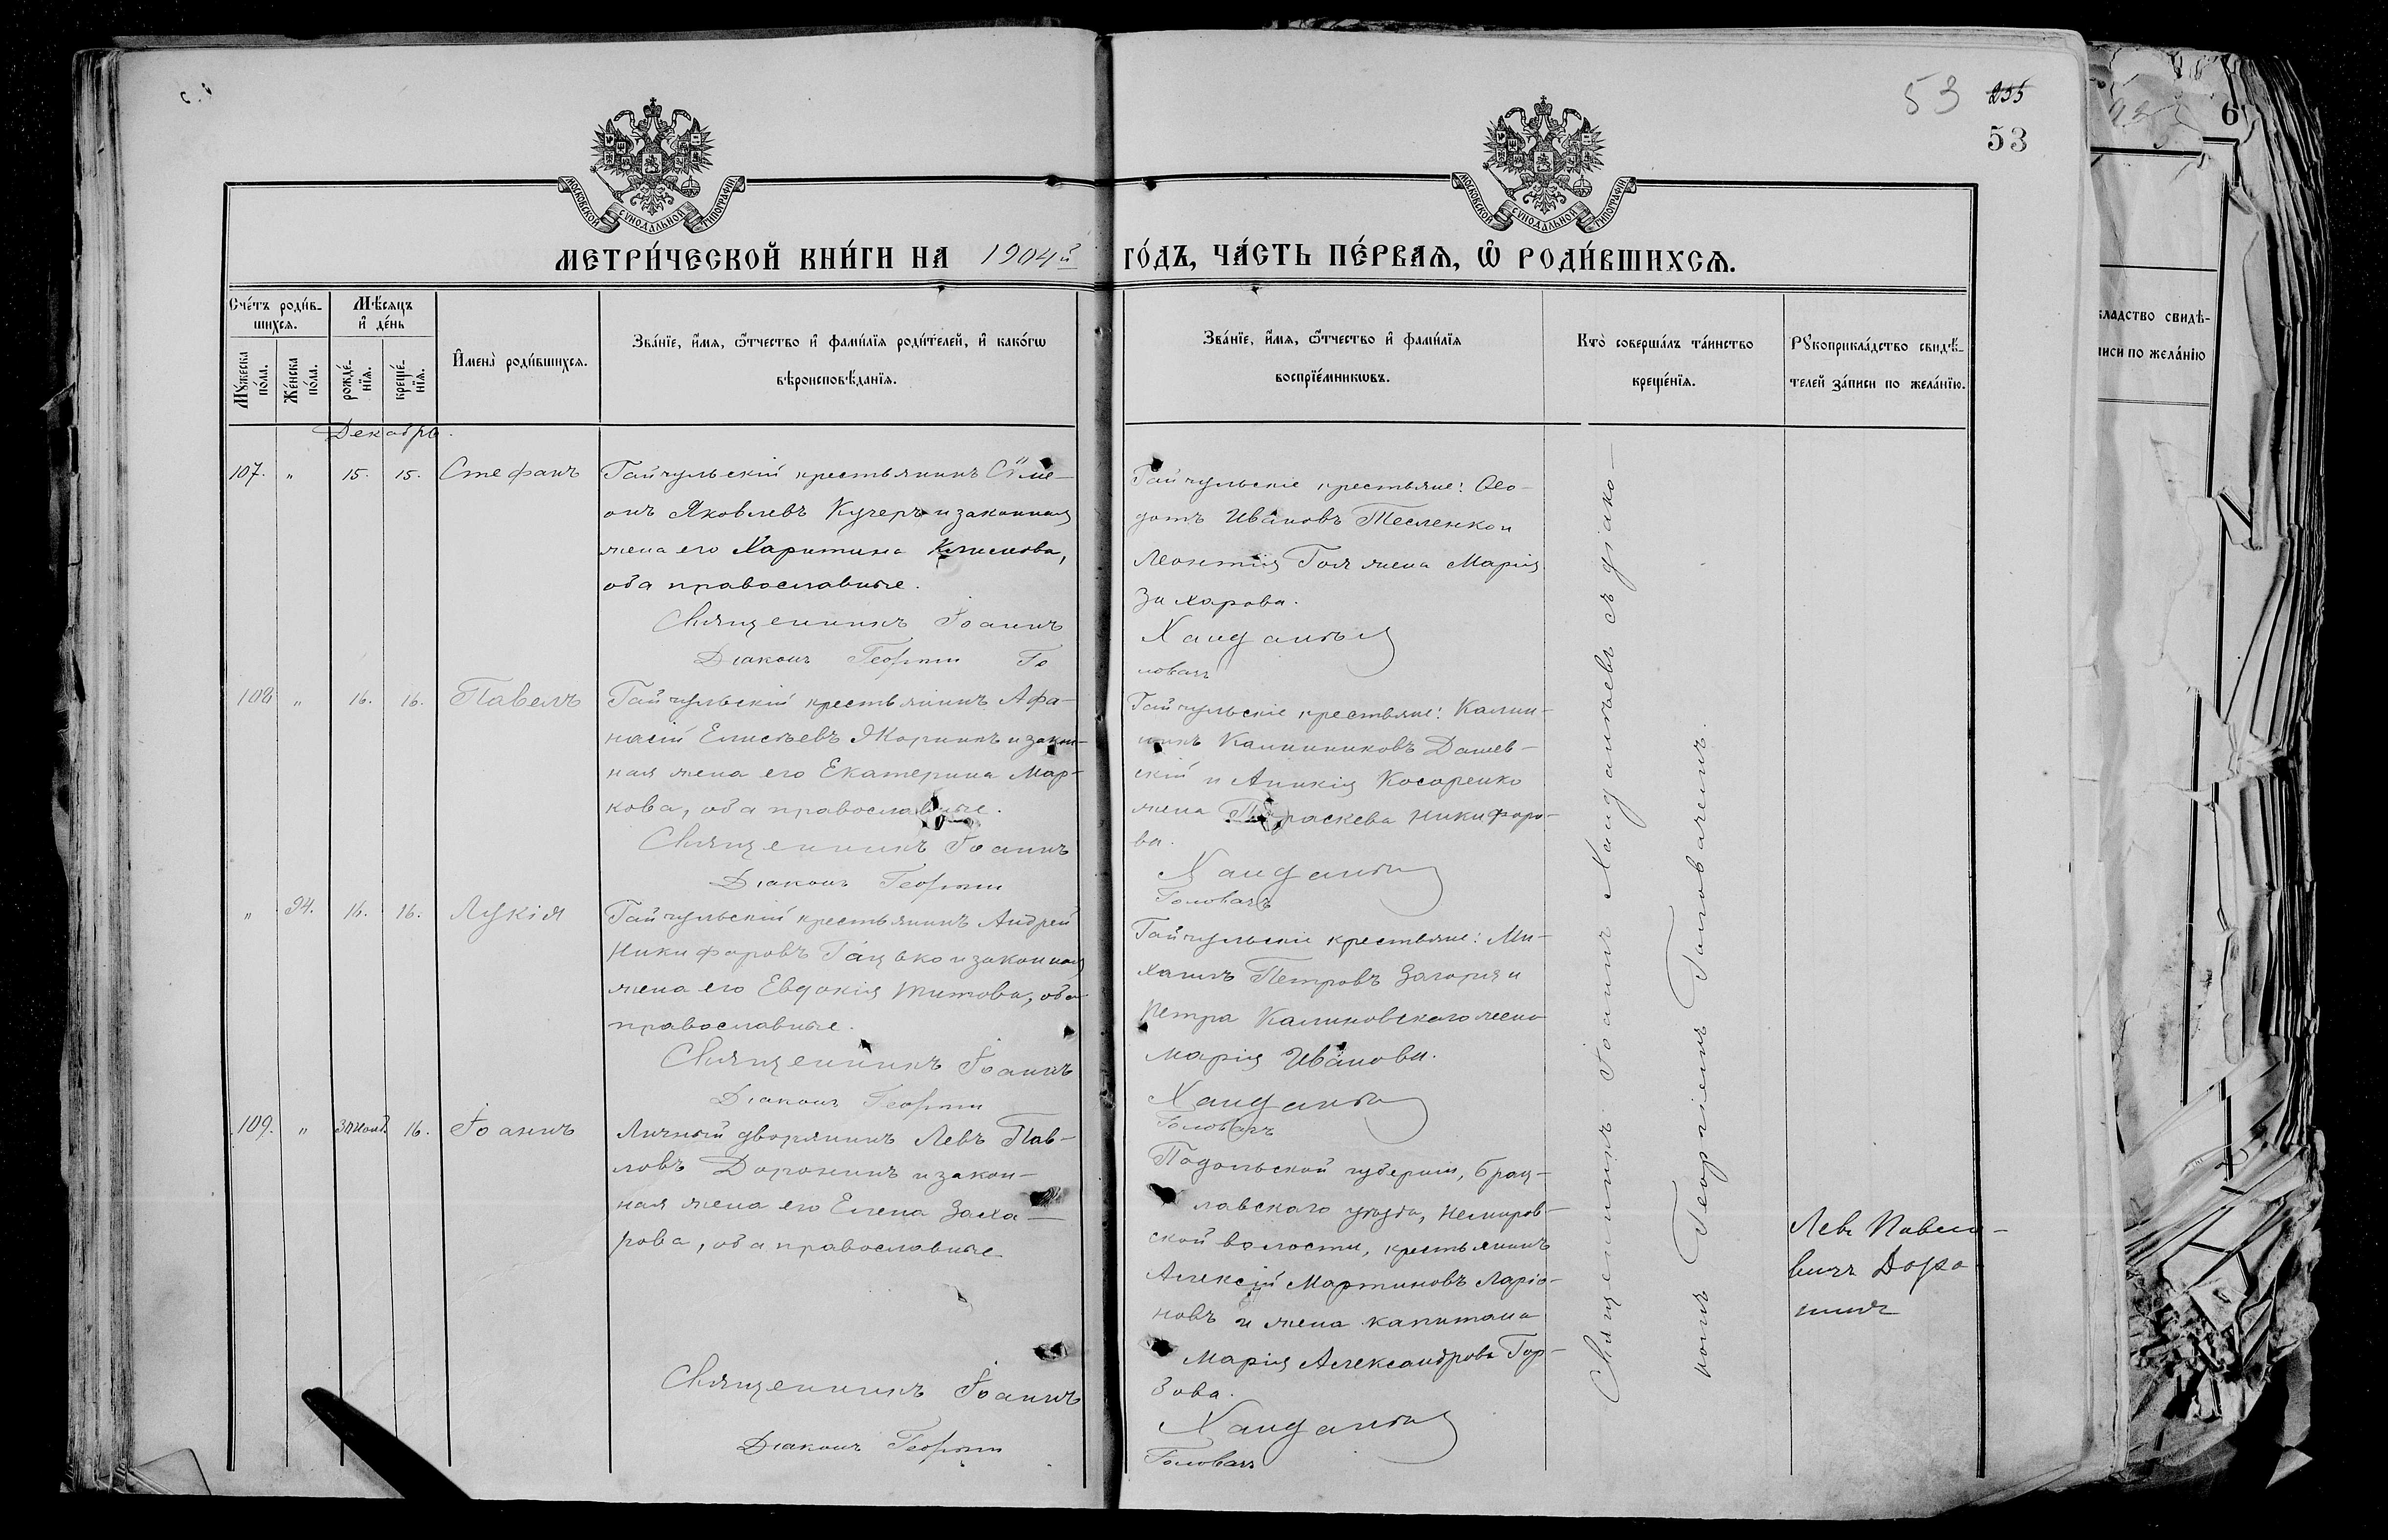 53 255
53
МОСКОВСКОЙ СѴНОДАЛЬНОЙ ТИПОГРАФІИ
МОСКОВСКОЙ СѴНОДАЛЬНОЙ ТИПОГРАФІИ
МЕТРИ́ЧЕСКОЙ КНИ́ГИ НА 1904й ГО́ДЪ, ЧА́СТЬ ПЕ́РВАѦ, Ѡ҆ РОДИ́ВШИХСѦ.
Сче́тъ роди́в-
шихсѧ.
Мꙋ́жеска
по́ла.
Же́нска
по́ла.
Мѣ́сѧцъ
и҆ де́нь
рожде́-
нїѧ.
креще́-
нїѧ.
И҆мена̀ роди́вшихсѧ.
Зва́нїе, и҆́мѧ, ѻ҆́тчество и҆ фами́лїѧ роди́телей, и҆ како́гѡ
вѣроисповѣ́данїѧ.
Зва́нїе, и҆́мѧ, ѻ҆́тчество и҆ фами́лїѧ
воспрїе́мникѡвъ.
Кто̀ соверша́лъ та́инство
креще́нїѧ.
Рꙋкоприкла́дство свидѣ́-
телей за́писи по жела́нїю.
Декабрь.
107. " 15. 15. Стефанъ
Гайчульскій крестьянинъ Сѵме-
онъ Яковлевъ Кучеръ и законная
жена его Харитина Климова,
оба православные.
Священникъ Іоаннъ
Діаконъ Георгій Го
Гайчульскіе крестьяне: Ѳео-
дотъ Ивановъ Тесленко и
Леонтія Гоя жена Марія
Захарова.
Хандалѣй
ловачъ
108 " 16. 16. Павелъ
Гайчульскій крестьянинъ Афа-
насій Елисѣевъ Жоринъ и закон-
ная жена его Екатерина Мар-
кова, оба православные.
Священникъ Іоаннъ
Діаконъ Георгій
Гайчульскіе крестьяне: Калин-
никъ Калинниковъ Дашев-
скій и Аникія Косаренко
жена Параскева Никифоро-
ва.
Головачъ
" 94. 16. 16. Лукія
Гайчульскій крестьянинъ Андрей
Никифоровъ Гацько и законная
жена его Евдокія Титова, оба
православные.
Священникъ Іоаннъ
Діаконъ Георгій
Гайчульскіе крестьяне: Ми-
хаилъ Петровъ Загорія и
Петра Калиновскаго жена
Марія Иванова.
Головачъ
109. " 16. Іоаннъ
Личный дворянинъ Левъ Пав-
ловъ Доронинъ и закон-
ная жена его Елена Заха-
рова, оба православные
Священникъ Іоаннъ
Діаконъ Георгій
Подольской губерніи, Брац-
лавскаго уѣзда, Немиров-
ской волости, крестьянинъ
Алексій Мартиновъ Ларіо-
новъ и жена капитана
Марія Александрова Гор-
зова.
Головачъ
Священникъ Іоаннъ съ діако-
номъ Георгіемъ Головачемъ.
Левъ Павло-
вичъ Доро-
нинъ
кладство свидѣ-
писи по жела́нїю
6